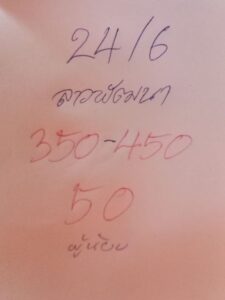 24/6
ลาวพัฒนา
350-450
50